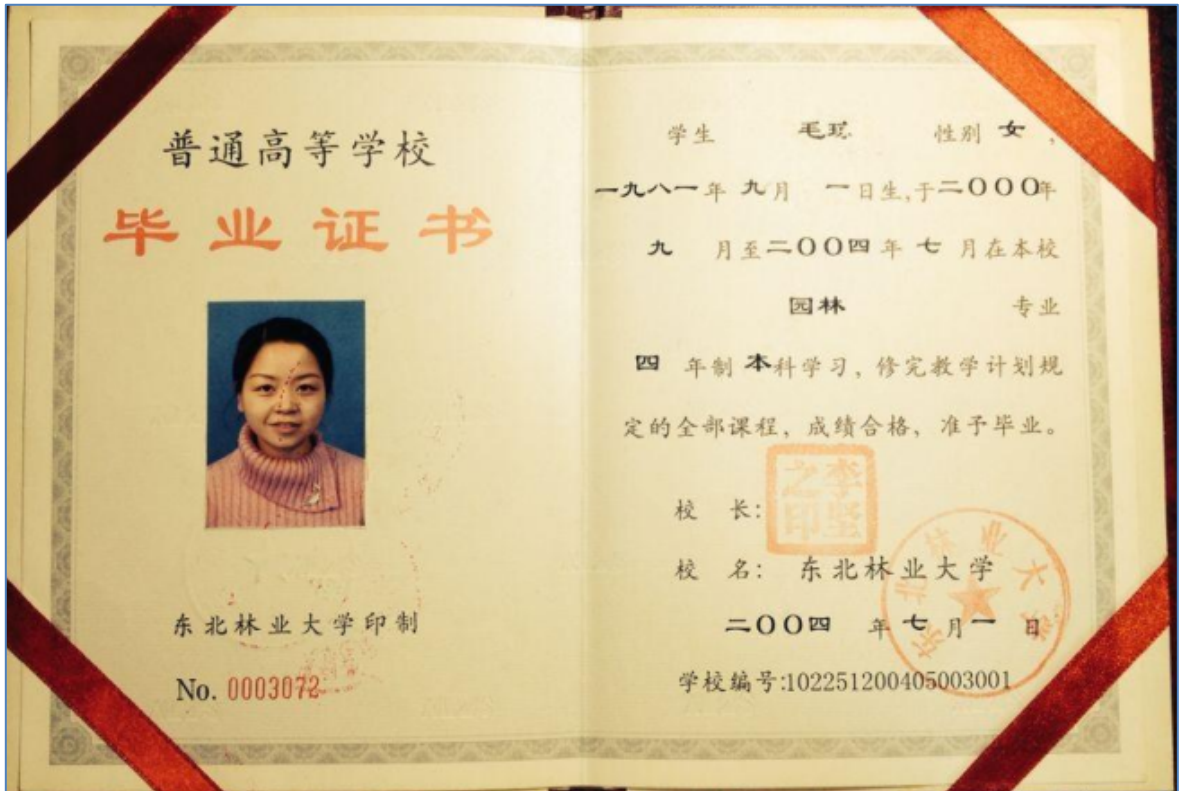 普通高等学校
毕业证书
东北林业大学印制
No. 0003072
学生 毛 性别 女，
一九八一年 九月 一日生,于二〇〇〇年
九 月至二〇〇四年 七 月在本校
园林 专业
四 年制 本科学习，修完教学计划规
定的全部课程，成绩合格，准予毕业。
校 长：
李坚之印
校 名： 东北林业大学
东北林业大学
二〇〇四 年 七月一 日
学校编号:102251200405003001